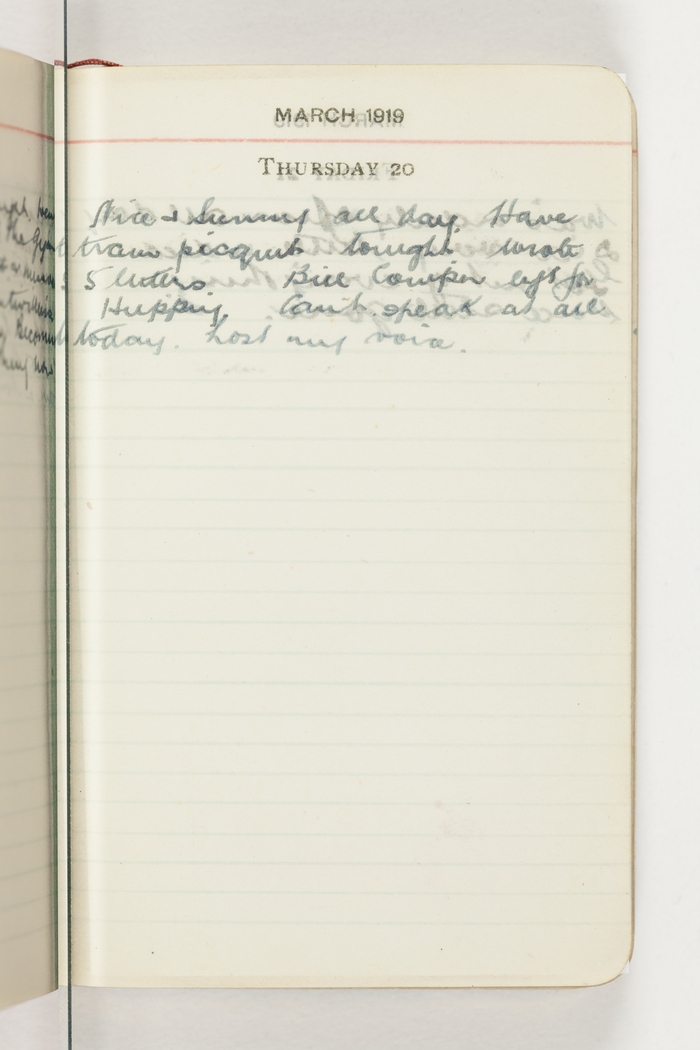 MARCH 1919
THURSDAY 20
Nice & Sunny all day. Have
train picquet tonight. Wrote
5 letters. Bill Cowper left for
Huppy. Cant speak at all
today. Lost my voice.